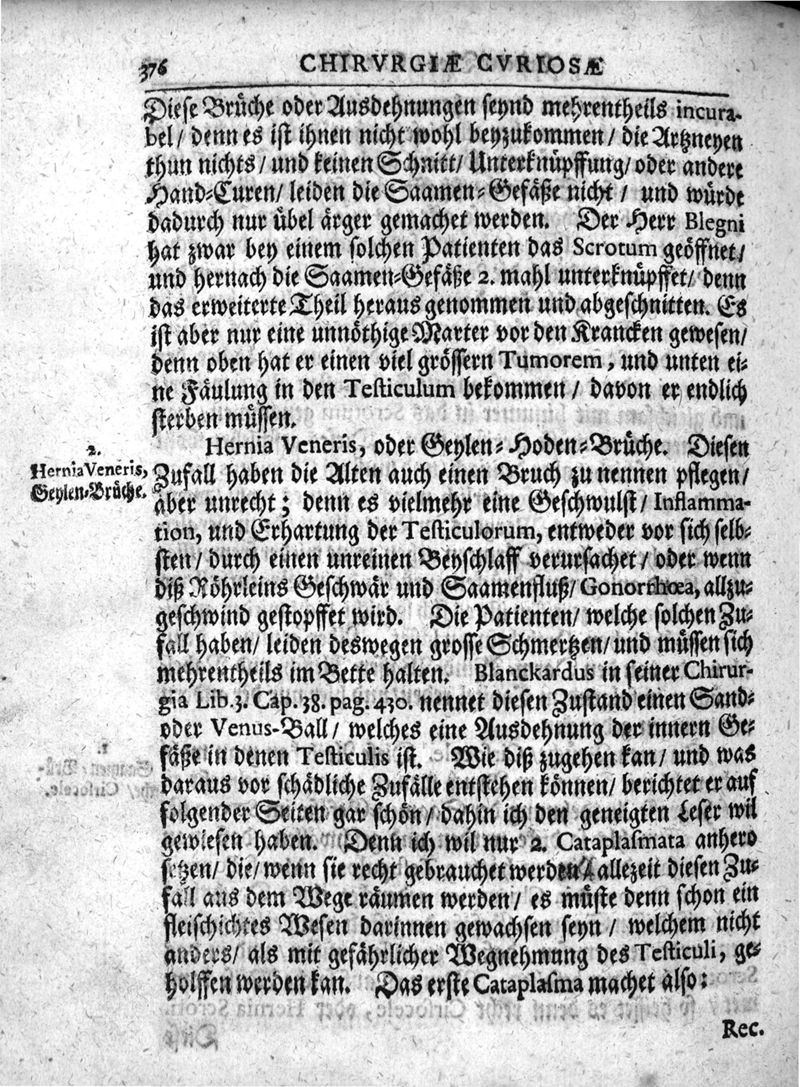 376 CHIRVRGIÆ CVRIOSÆ
Diese Brüche oder Ausdehnungen seynd mehrentheils incura-
bel/ denn es ist ihnen nicht wohl beyzukommen/ die Artzneyen
thun nichts/ und keinen Schnitt/ Unterknüpffung/ oder andere
Hand-Curen/ leiden die Saamen-Gefäße nicht/ und würde
dadurch nur übel ärger gemachet werden. Der Herr Blegni
hat zwar bey einem solchen Patienten das Scrotum geöffnet/
und hernach die Saamen-Gefäße 2. mahl unterknüpffet/ denn
das erweiterte Theil heraus genommen und abgeschnitten. Es
ist aber nur eine unnöthige Marter vor den Krancken gewesen/
denn oben hat er einen viel grössern Tumorem, und unten ei-
ne Fäulung in den Testiculum bekommen/ davon er endlich
sterben müssen.
2.
Hernia Veneris,
Geylen-Brüche.
Hernia Veneris, oder Geylen-Hoden-Brüche. Diesen
Zufall haben die Alten auch einen Bruch zu nennen pflegen/
aber unrecht; denn es vielmehr eine Geschwulst/ Inflamma-
tion, und Erhartung der Testiculorum, entweder vor sich selb-
sten/ durch einen unreinen Beyschlaff verursachet/ oder wenn
diß Röhrleins Geschwär und Saamenfluß/ Gonorrhœa, allzu-
geschwind gestopffet wird. Die Patienten/ welche solchen Zu-
fall haben/ leiden deswegen grosse Schmertzen/ und müssen sich
mehrentheils im Bette halten. Blanckardus in seiner Chirur-
gia Lib. 3. Cap. 38. pag. 430. nennet diesen Zustand einen Sand-
oder Venus-Ball/ welches eine Ausdehnung der innern Ge-
fäße in denen Testiculis ist. Wie diß zugehen kan/ und was
daraus vor schädliche Zufälle entstehen können/ berichtet er auf
folgender Seiten gar schön/ dahin ich den geneigten Leser wil
gewiesen haben. Denn ich wil nur 2. Cataplasmata anhero
setzen/ die/ wenn sie recht gebrauchet werden/ allezeit diesen Zu-
fall aus dem Wege räumen werden/ es müste denn schon ein
fleischichtes Wesen darinnen gewachsen seyn/ welchem nicht
anders/ als mit gefährlicher Wegnehmung des Testiculi, ge-
holffen werden kan. Das erste Cataplasma machet also:
Rec.